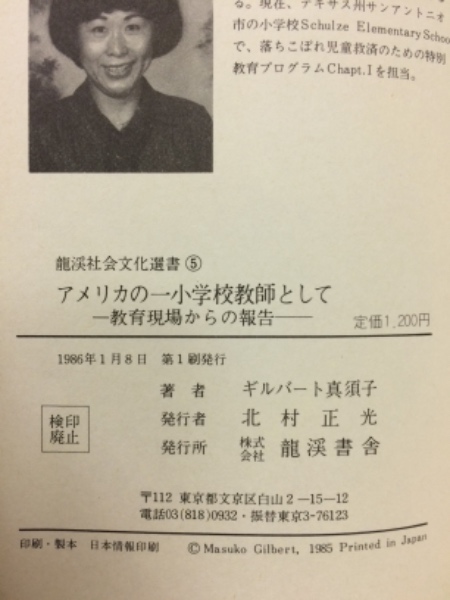 る。現在、テキサス州サンアントニオ
市の小学校Schulze Elementary Schoo
で、落ちこぼれ児童救済のための特別
教育プログラムChapt.Iを担当。
龍渓社会文化選書⑤
アメリカの一小学校教師として
―教育現場からの報告――
定価1,200円
1986年1月8日 第1刷発行
著者 ギルバート真須子
検印廃止
発行者 北村正光
発行所 株式会社 龍渓書舎
〒112 東京都文京区白山2―15―12
電話03(818)0932・振替東京3-76123
印刷・製本 日本情報印刷 ©Masuko Gilbert, 1985 Printed in Japan